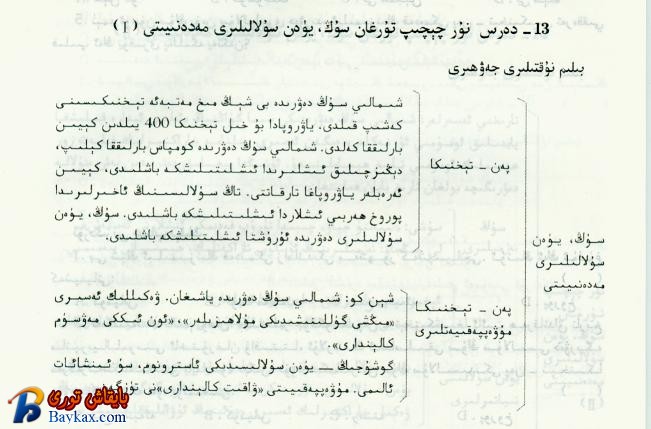 13 - دەرس نۇر چېچىپ تۇرغان سۇڭ، يۈەن سۇلالىلىرى مەدەنىيىتى (Ⅰ)
بىلىم نۇقتىلىرى جەۋھىرى
سۇڭ، يۈەن
سۇلالىلىرى
مەدەنىيىتى
پەن - تېخنىكا
شىمالىي سۇڭ دەۋرىدە بى شېڭ مىخ مەتبەئە تېخنىكىسىنى
كەشىپ قىلدى. ياۋروپادا بۇ خىل تېخنىكا 400 يىلدىن كېيىن
بارلىققا كەلدى. شىمالىي سۇڭ دەۋرىدە كومپاس بارلىققا كېلىپ،
دېڭىزچىلىق ئىشلىرىدا ئىشلىتىلىشكە باشلىدى، كېيىن
ئەرەبلەر ياۋروپاغا تارقاتتى. تاڭ سۇلالىسىنىڭ ئاخىرلىرىدا
پوروخ ھەربىي ئىشلاردا ئىشلىتىلىشكە باشلىدى. سۇڭ، يۈەن
سۇلالىلىرى دەۋرىدە ئۇرۇشتا ئىشلىتىلىشكە باشلىدى.
پەن - تېخنىكا
مۇۋەپپەقىيەتلىرى
شېن كو: شىمالىي سۇڭ دەۋرىدە ياشىغان. ۋەكىللىك ئەسىرى
«مېڭشى گۈللىتىشىدىكى مۇلاھىزىلەر»، «ئون ئىككى مەۋسۇم
كالېندارى».
گوشۇجىڭ — يۈەن سۇلالىسىدىكى ئاسترونوم، سۇ ئىنشائات
ئالىمى. مۇۋەپپەقىيىتى «ۋاقىت كالېندارى»نى تۈزگەن
بايقاش تورى
Baykax.com